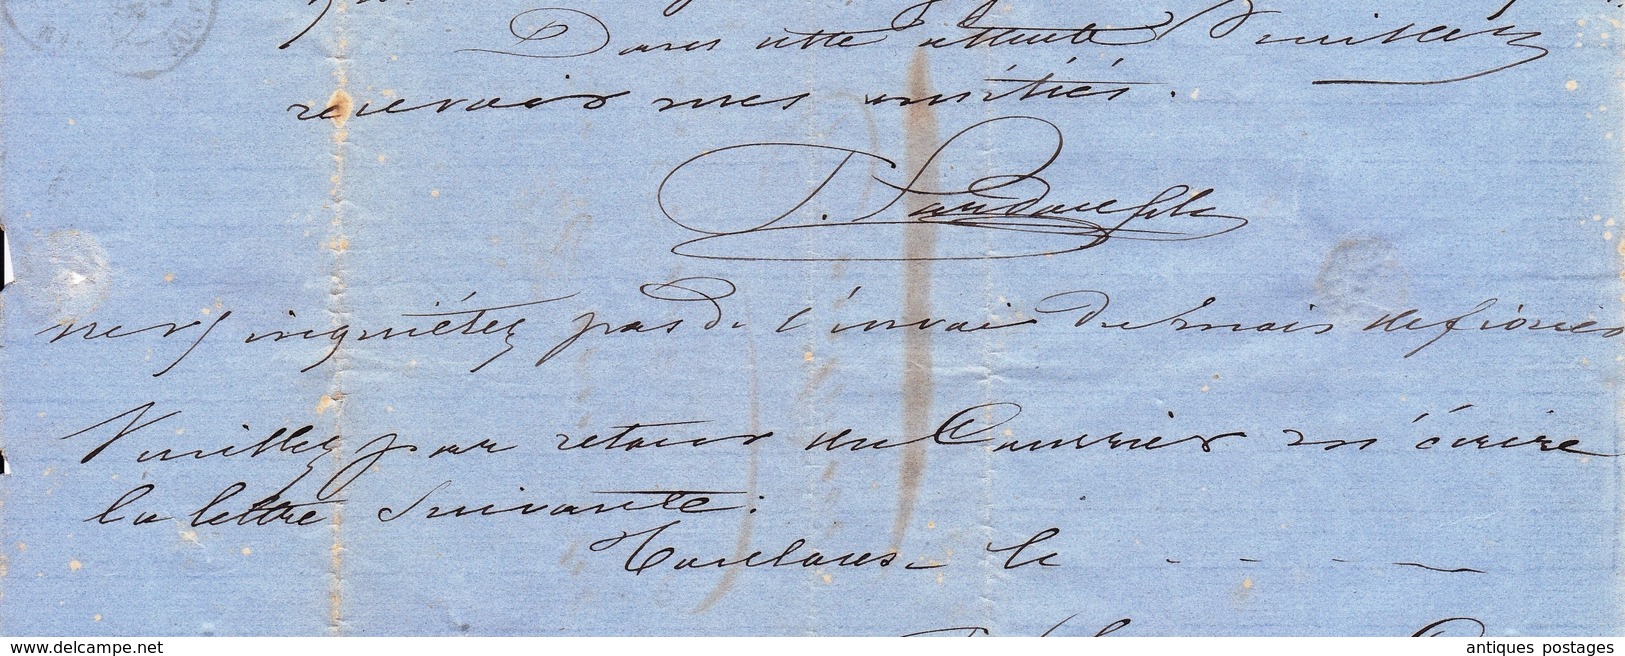 Dans cette attente Veuillez
recevoir mes amitiés.
J.
ne v/ inquiétez pas de l'envoi du mois de
Veuillez par retour du Courrier m'écrire
la lettre Suivante:
Toulouse le - - - -
delcampe.net
antiques postages